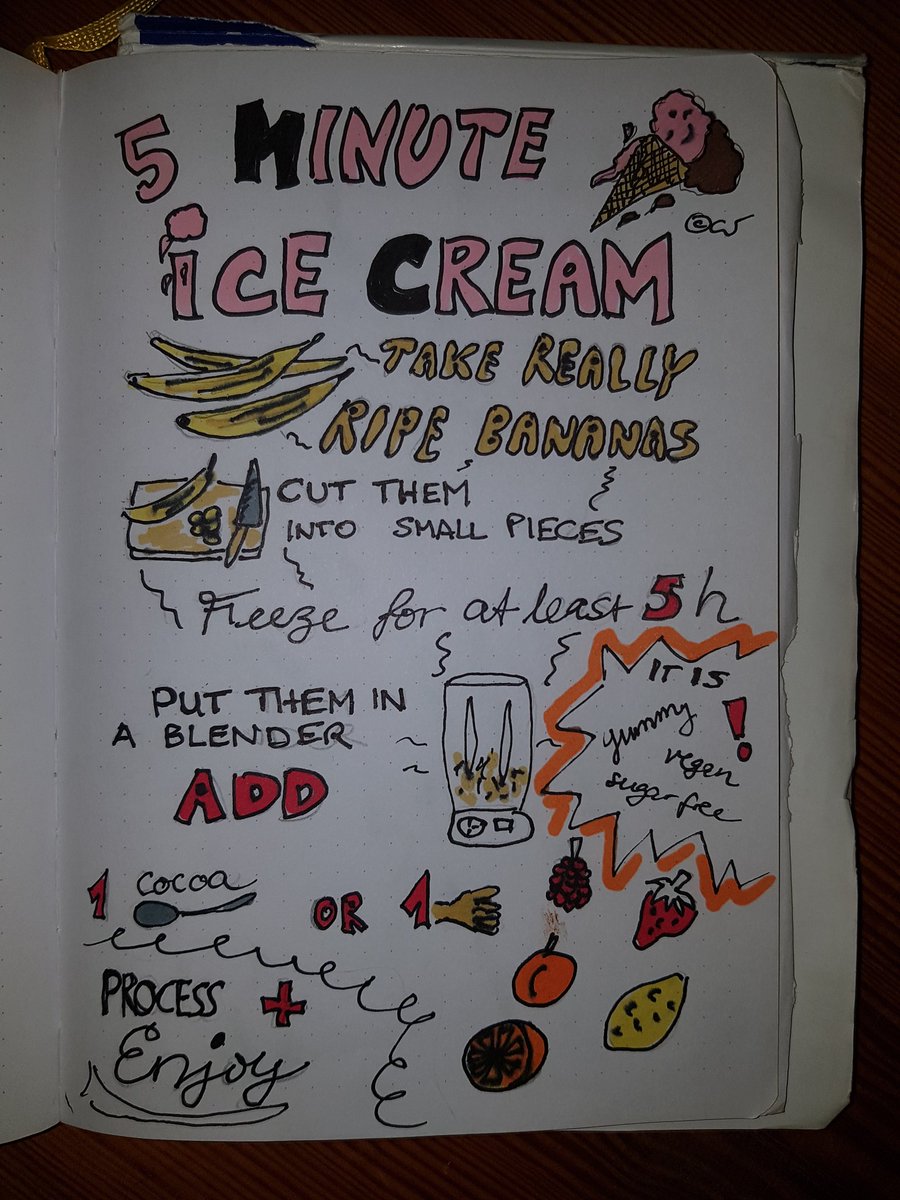 5 MINUTE
©CW
ICE CREAM
TAKE REALLY
RIPE BANANAS
CUT THEM
INTO SMALL PIECES
Freeze for at least 5h
PUT THEM IN
A BLENDER
ADD
IT IS
yummy
vegan
sugar free
!
1 cocoa
OR 1
PROCESS +
Enjoy